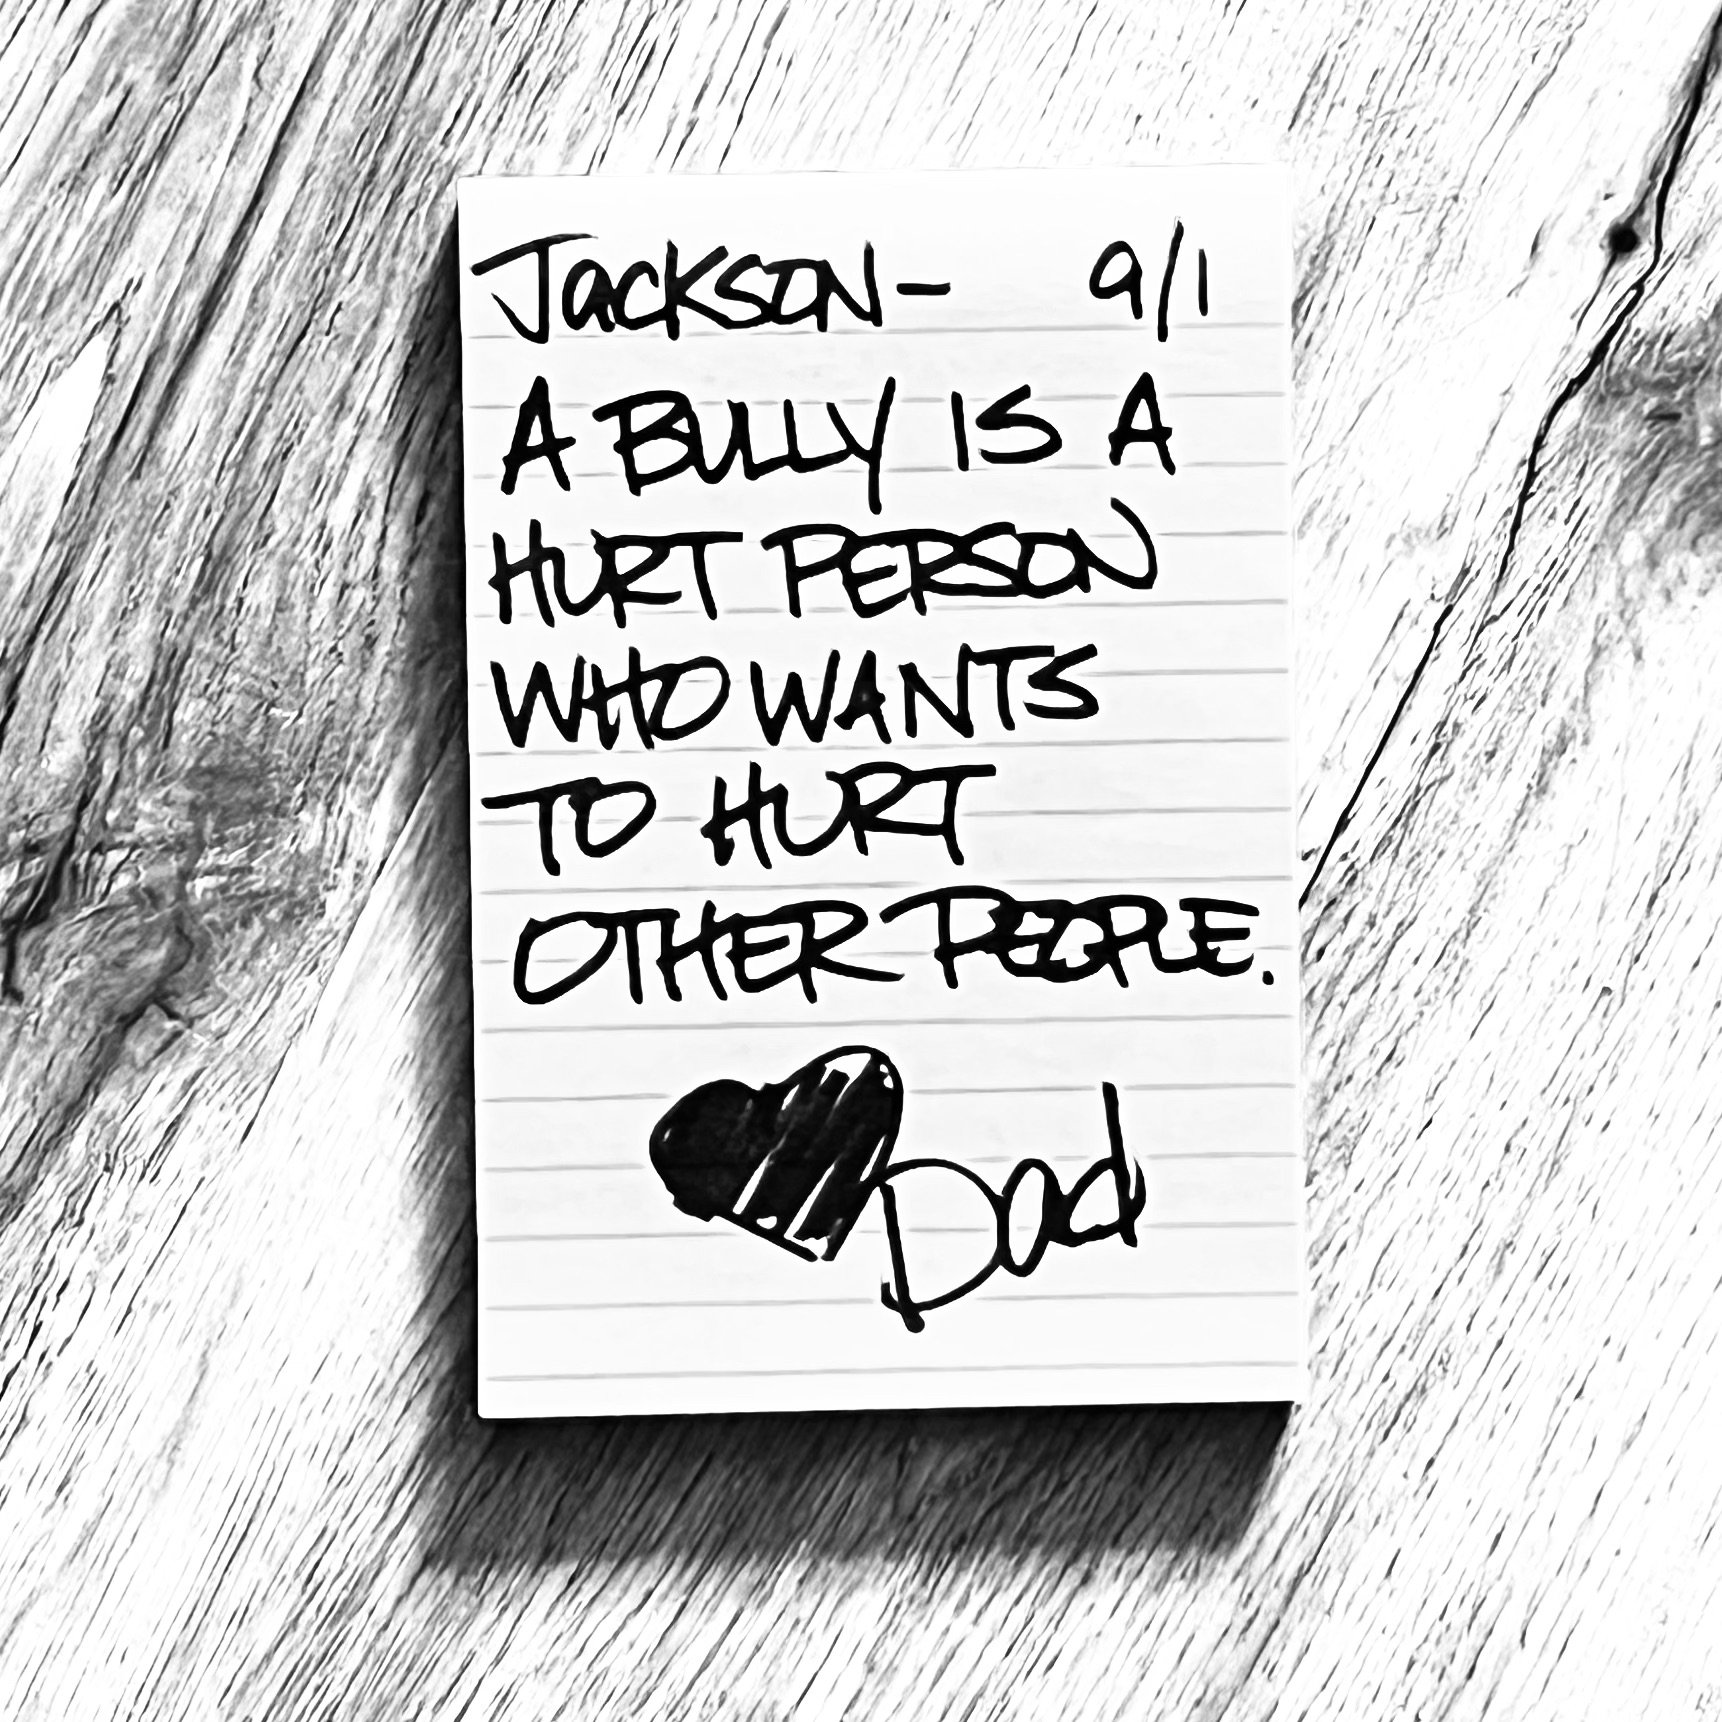 Jackson- 9/1
A BULLY IS A
HURT PERSON
WHO WANTS
TO HURT
OTHER PEOPLE.
Dad